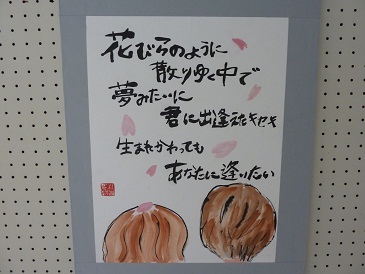 花びらのように
散りゆく中で
夢みたいに
君に出逢えたキセキ
生まれかわっても
あなたに逢いたい